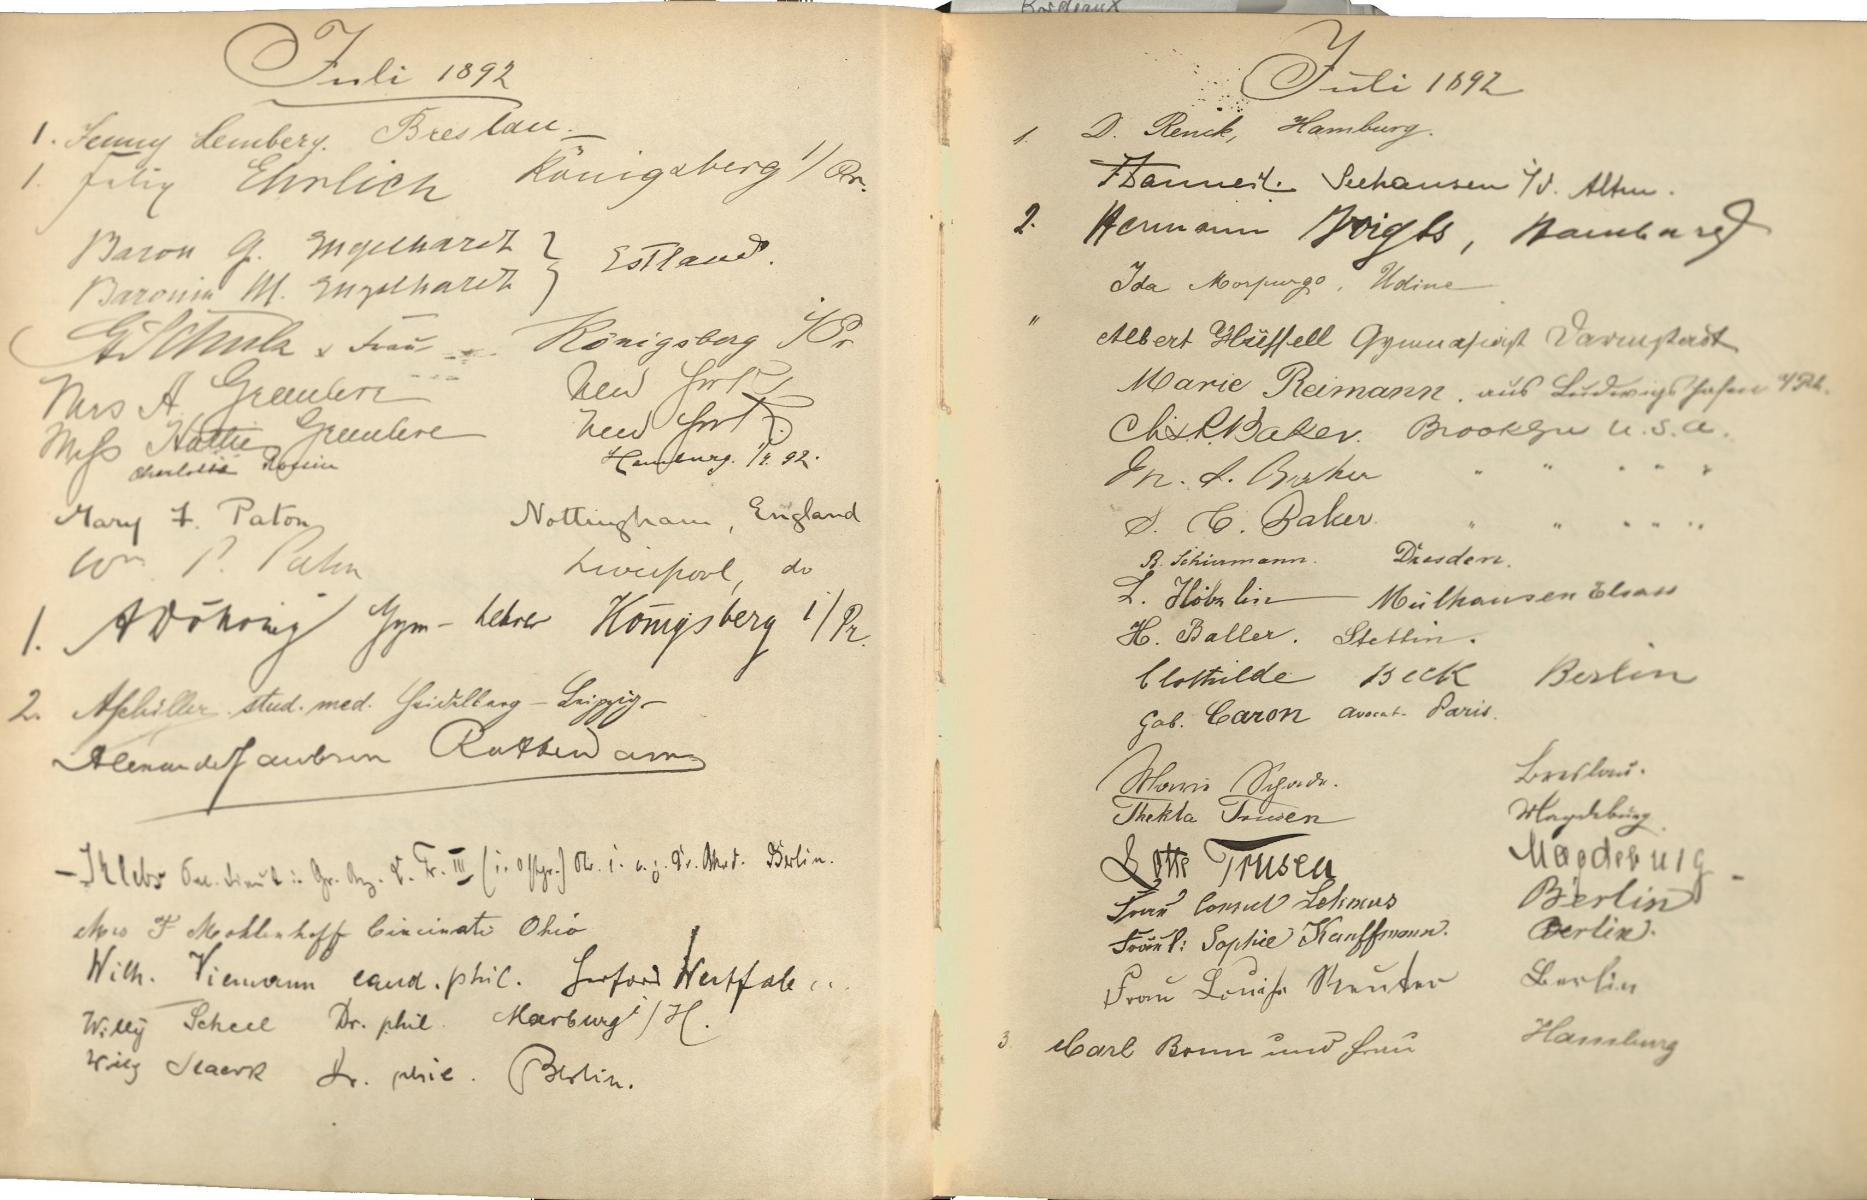 Bordeaux
Juli 1892
1. Jenny Lemberg. Breslau.
1. Felix Ehrlich Königsberg i/Pr.
Baron G. Engelhardt } Estland.
Baronin M. Engelhardt
Schulz & Frau Königsberg i/Pr
Mrs A. Greenlere New York
Miss Hattie Greenlere New York
Charlotte Hamburg. 92.
Mary F. Paton Nottingham, England
Wm P. Paton Liverpool, do
1. A Döhring Gym-Lehrer Königsberg i/Pr.
2. A Schiller stud. med. Heidelberg – Leipzig
Alexander Jacobson Rotterdam
Klebs Berlin.
Mrs F Mecklenhoff Cincinati Ohio
Wilh. Niemann cand. phil. Herford Westfale
Willy Scheel Dr. phil. Marburg i/H.
Willy Staerk Dr. phil. Berlin.
Juli 1892
1. D. Renck, Hamburg.
Seehausen i/d. Altm.
2. Hermann Voigts, Hamburg
Ida Morpurgo, Udine
" Albert Hüffell Gymnasiast Darmstadt
Marie Reimann, aus Ludwigshafen a/Rh.
Chs R. Baker. Brooklyn U.S.A.
M. L. Baker " " " " "
S. C. Baker " " " " "
R. Schirmann. Dresden.
L. Mülhausen Elsass
H. Baller. Stettin.
Clothilde Beck Berlin
Gab. Caron avocat. Paris.
Marie Breslau.
Thekla Trusen Magdeburg.
Lotte Trusen Magdeburg
Frau Consul Lehmus Berlin
Fräul: Sophie Kauffmann. Berlin.
Frau Louise Reuter Berlin
3. Carl Bonn und Frau Hamburg